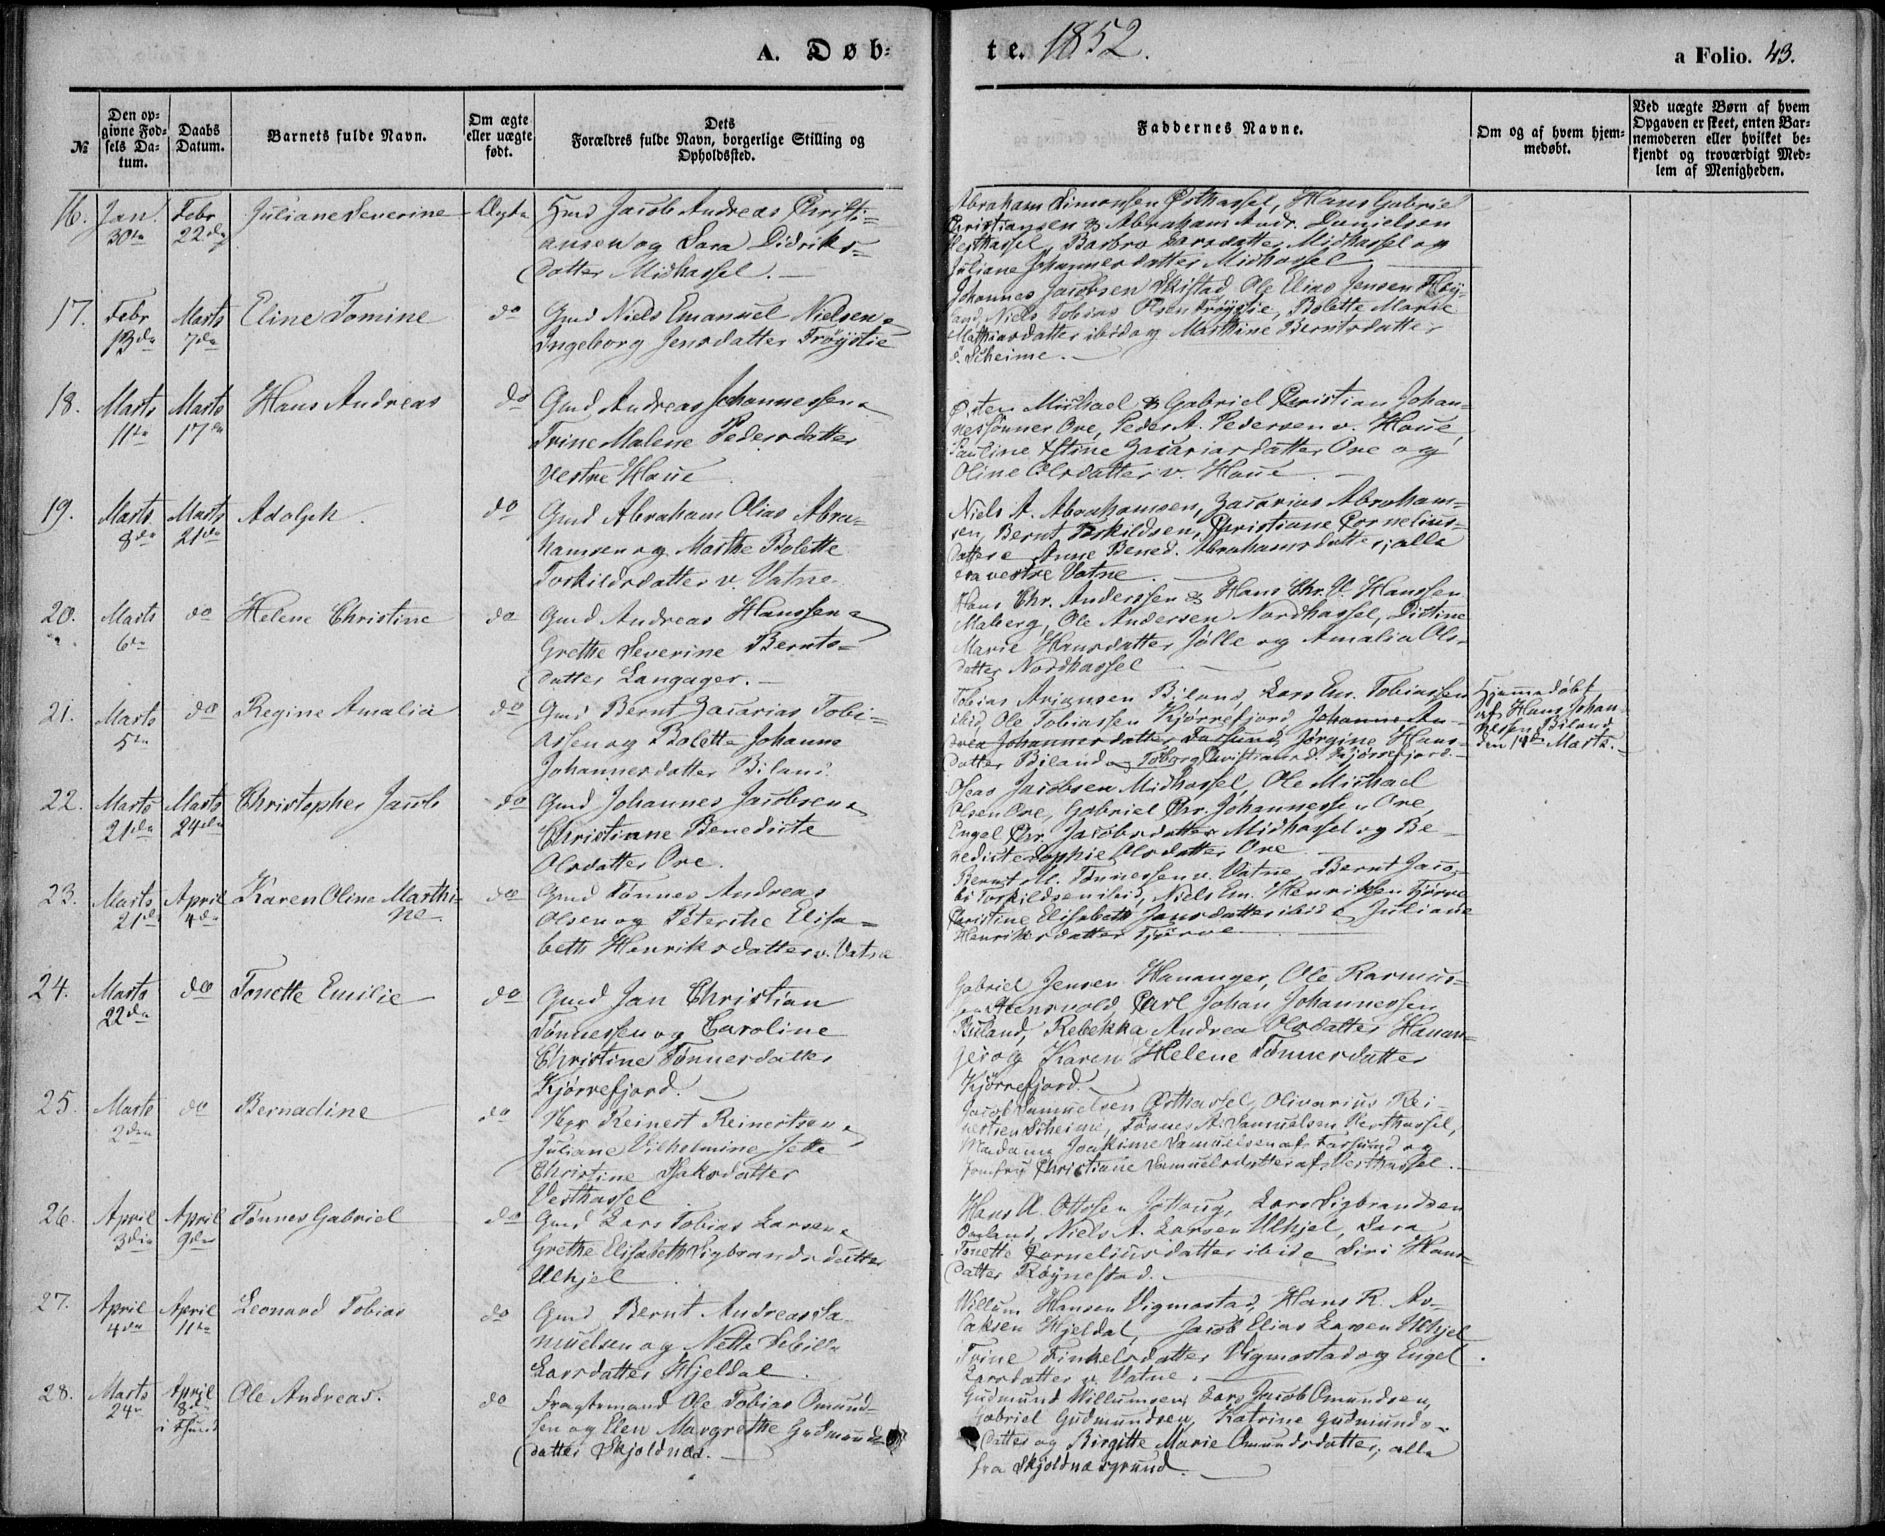 A. Døb-
te. 1852.
a Folio. 43.
№
Den op-
givne Fød-
sels Da-
tum.
Daabs
Datum.
Barnets fulde Navn.
Om ægte
eller uægte
født.
Dets
Forældres fulde Navn, borgerlige Stilling og
Opholdssted.
Faddernes Navne.
Om og af hvem hjem-
medøbt.
Ved uægte Børn af hvem
Opgaven er skeet, enten Bar-
nemoderen eller hvilket be-
kjendt og troværdigt Med-
lem af Menigheden.
16. Jan. 30te Febr 22de Juliane Severine Ægte
Jacob Andreas Christi-
ansen og Sara Didriks-
datter Midhassel.
Abraham Simonsen Østhassel, Hans Gabriel
Christiansen & Abraham Andr. Danielsen
Vesthassel, Barbro Larsdatter Midhassel og
Juliane Johannesdatter Midhassel
17. Febr 13de Marts 7de Eline Tomine do
Gmd Niels Emanuel Nielsen &
Ingeborg Jensdatter Frøystie
Johannes Jacobsen Skistad, Ole Elias Jensen Høy-
land, Niels Tobias Olsen Frøystie, Bolette Marie
Mathiasdatter ibid og Marthine Berntsdatter
Scheime.
18. Marts 11te Marts 17de Hans Andreas do
Gmd Andreas Johannessen &
Trine Malene Pedersdatter
Vestre Haue
Michael & Gabriel Christian Johan-
nessønner Ore, Peder A. Pedersen v. Haue,
Pauline Zacariasdatter Ore og
Oline Olsdatter v. Haue.
19. Marts 8de Marts 21de Adolph. do
Gmd Abraham Olias Abra-
hamsen og Marthe Bolette
Torkildsdatter v. Vatne
Niels A. Abrahamsen, Zacarias Abraham-
sen, Bernt Torkildsen, Christiane Cornelius-
datter & Anne Bened. Abrahamsdatter; alle
fra vestre Vatne.
20. Marts 6te do Helene Christine do
Gmd Andreas Hanssen &
Grethe Severine Bernts-
datter Langager.
Hans Chr. Anderssen & Hans Chr. V. Hanssen
Maberg, Ole Andersen Nordhassel, Distine
Marie Hansdatter Jølle og Amalia Ols-
datter Nordhassel
21. Marts 5te do Regine Amalia do
Gmd Bernt Zacarias Tobi-
assen og Bolette Johanne
Johannesdatter Biland.
Tobias Arjansen Biland, Lars Em. Tobiassen
ibid, Ole Tobiassen Kjørrefjord, Johanne An-
drea Johannesdatter Farsund, Jørgine Hans-
datter Biland og Christiansd. Kjørrefjord.
Hjemmedøbt
af Hans Johan-
nessen Biland
den 14de Marts.
22. Marts 21de Marts 24de Christopher Jacob do
Gmd Johannes Jacobsen &
Christiane Benedicte
Olsdatter Ore.
Jacobsen Midhassel, Ole Michael
Olsen Ore, Gabriel Chr. Johannessen Ore,
Engel Chr. Jacobsdatter Midhassel og Be-
nedicte Sophie Olsdatter Ore
23. Marts 21de April 4de Karen Oline Marthi-
ne do
Gmd Tønnes Andreas
Olsen og Peterike Elisa-
beth Henriksdatter v. Vatne
Bernt M. Tønnessen v. Vatne, Bernt Jaco-
bs Torkildsen ibid, Niels Em. Henriksen Tjørve
Christine Elisabeth Jansdatter ibid & Juliane
Henriksdatter Tjørve
24. Marts 22de do Tonette Emilie do
Gmd Jan Christian
Tønnessen og Caroline
Christine Tønnesdatter
Kjørrefjord.
Gabriel Jensen Hananger, Ole Rasmus-
sen Carl Johan Johannessen
Biland, Rebekka Andrea Olsdatter Hanan-
ger og Karen Helene Tønnesdatter
Kjørrefjord.
25. Marts 2den do Bernadine do
Reinert Reinertsen &
Juliane Vilhelmine Jette
Christine Isaksdatter
Vesthassel
Jacob Samuelsen Østhassel, Olivarius Rei-
nertsen Scheime, Tønnes A. Samuelsen Vesthassel,
Madame Joakime Samuelsen af Farsund og
Jomfru Christiane Samuelsdatter af Vesthassel.
26. April 3die April 9de Tønnes Gabriel do
Gmd Lars Tobias Larsen &
Grethe Elisabeth Sigbrandsdatter
Ulhjel
Hans A. Ottosen Lars Sigbrandsen
Niels A. Larsen Ulhjel, Sara
Tonette Corneliusdatter ibid & Siri Hans-
datter Røynestad.
27. April 4de April 11te Leonard Tobias do
Gmd Bernt Andreas Sa-
muelsen og Nette Sebille
Larsdatter Hjeldal.
Villum Hansen Vigmostad, Hans R. As-
laksen Hjeldal, Jacob Elias Larsen Ulhjel
Trine Finkelsdatter Vigmostad og Engel
Larsdatter v. Vatne.
28. Marts 24de April 8de i Fsund Ole Andreas. do
Fragtemand Ole Tobias Omund-
sen og Elen Margrethe Gudmunds-
datter Skjoldnæs.
Gudmund Willumsen, Lars Jacob Omundsen,
Gabriel Gudmundsen, Katrine Gudmunds-
datter og Birgitte Marie Omundsdatter; alle
fra Skjoldnæsgrund.